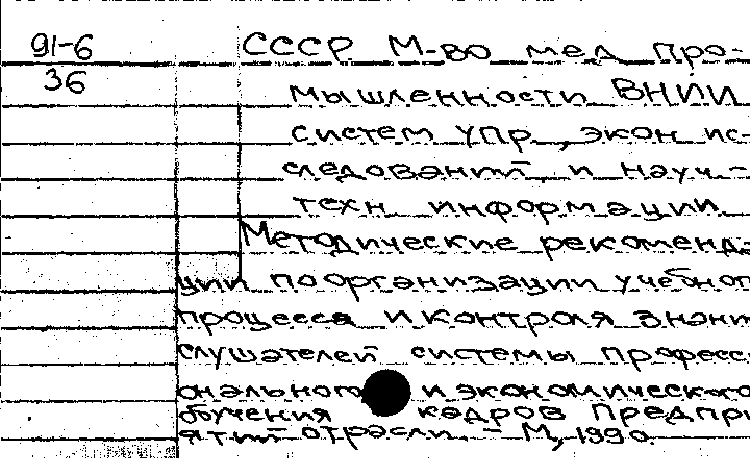 91-6 СССР М-во мед про-
36
мышленности ВНИИ
систем упр, экон ис-
следований и науч-
техн информации.
Методические рекоменда-
ции по организации учебного
процесса и контроля знани
слушателей системы професс
онального и экономического
обучения кадров предпри
ятий отрасли. - М, 1990.